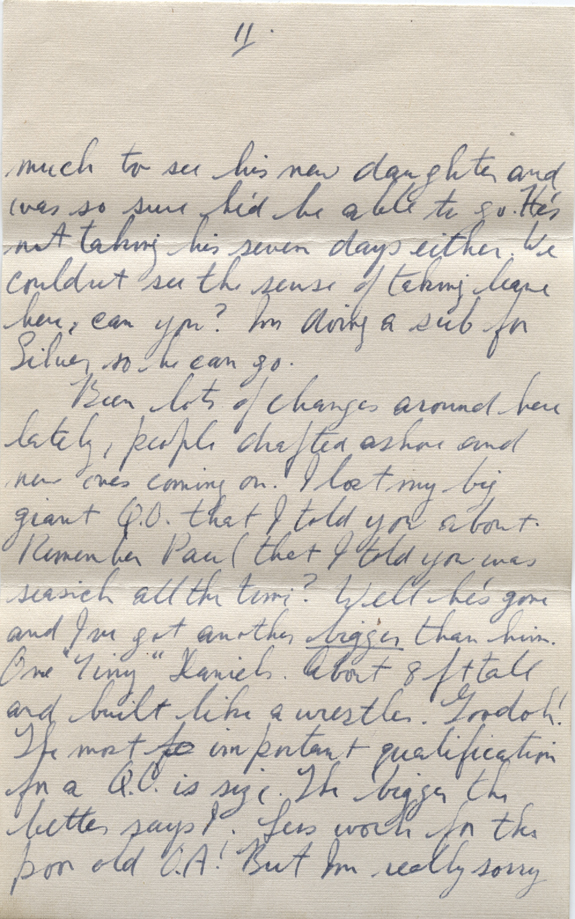 11.
much to see his new daughter and
was so sure he'd be able to go. He's
not taking his seven days either. We
couldnt see the sense of taking leave
here, can you? Im doing a sub for
Silver so he can go.
Been lots of changes around here
lately, people drafted ashore and
new ones coming on. I lost my big
giant Q.O. that I told you about.
Remember Paul that I told you was
seasick all the time? Well he's gone
and I've got another bigger than him.
One "Tiny" Daniels. About 8 ft tall
and built like a wrestler. Goodoh!
The most important qualification
for a Q.O. is size. The bigger the
better says I. Less work for the
poor old O.A! But Im really sorry